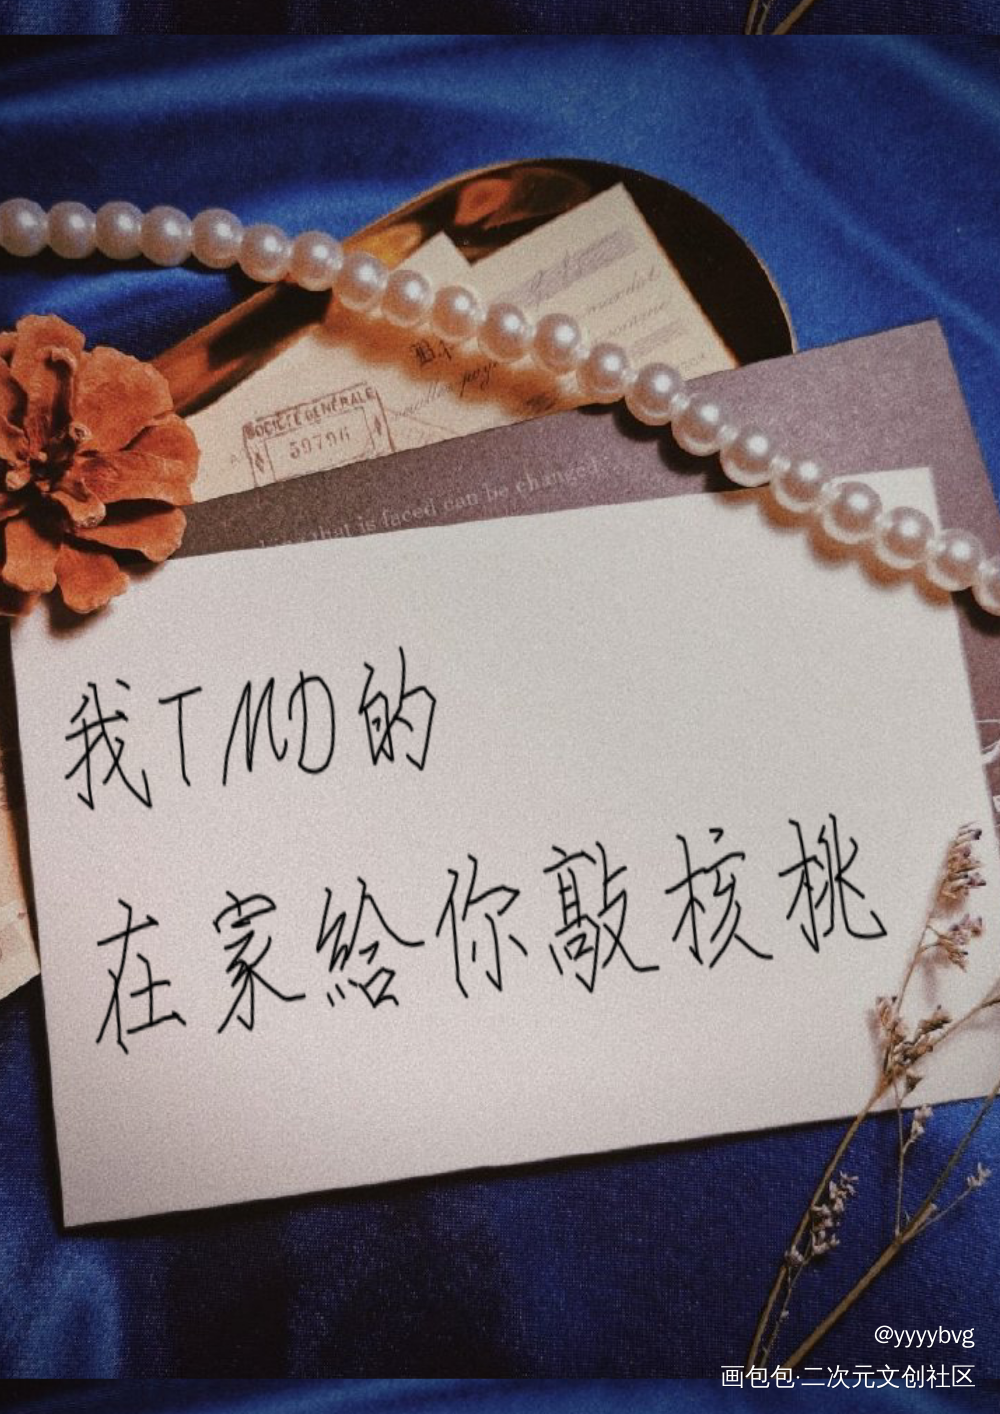 SOCIÉTÉ GÉNÉRALE
59796
that is faced can be changed
我TMD的
在家給你敲核桃
@yyyybvg
画包包·二次元文创社区